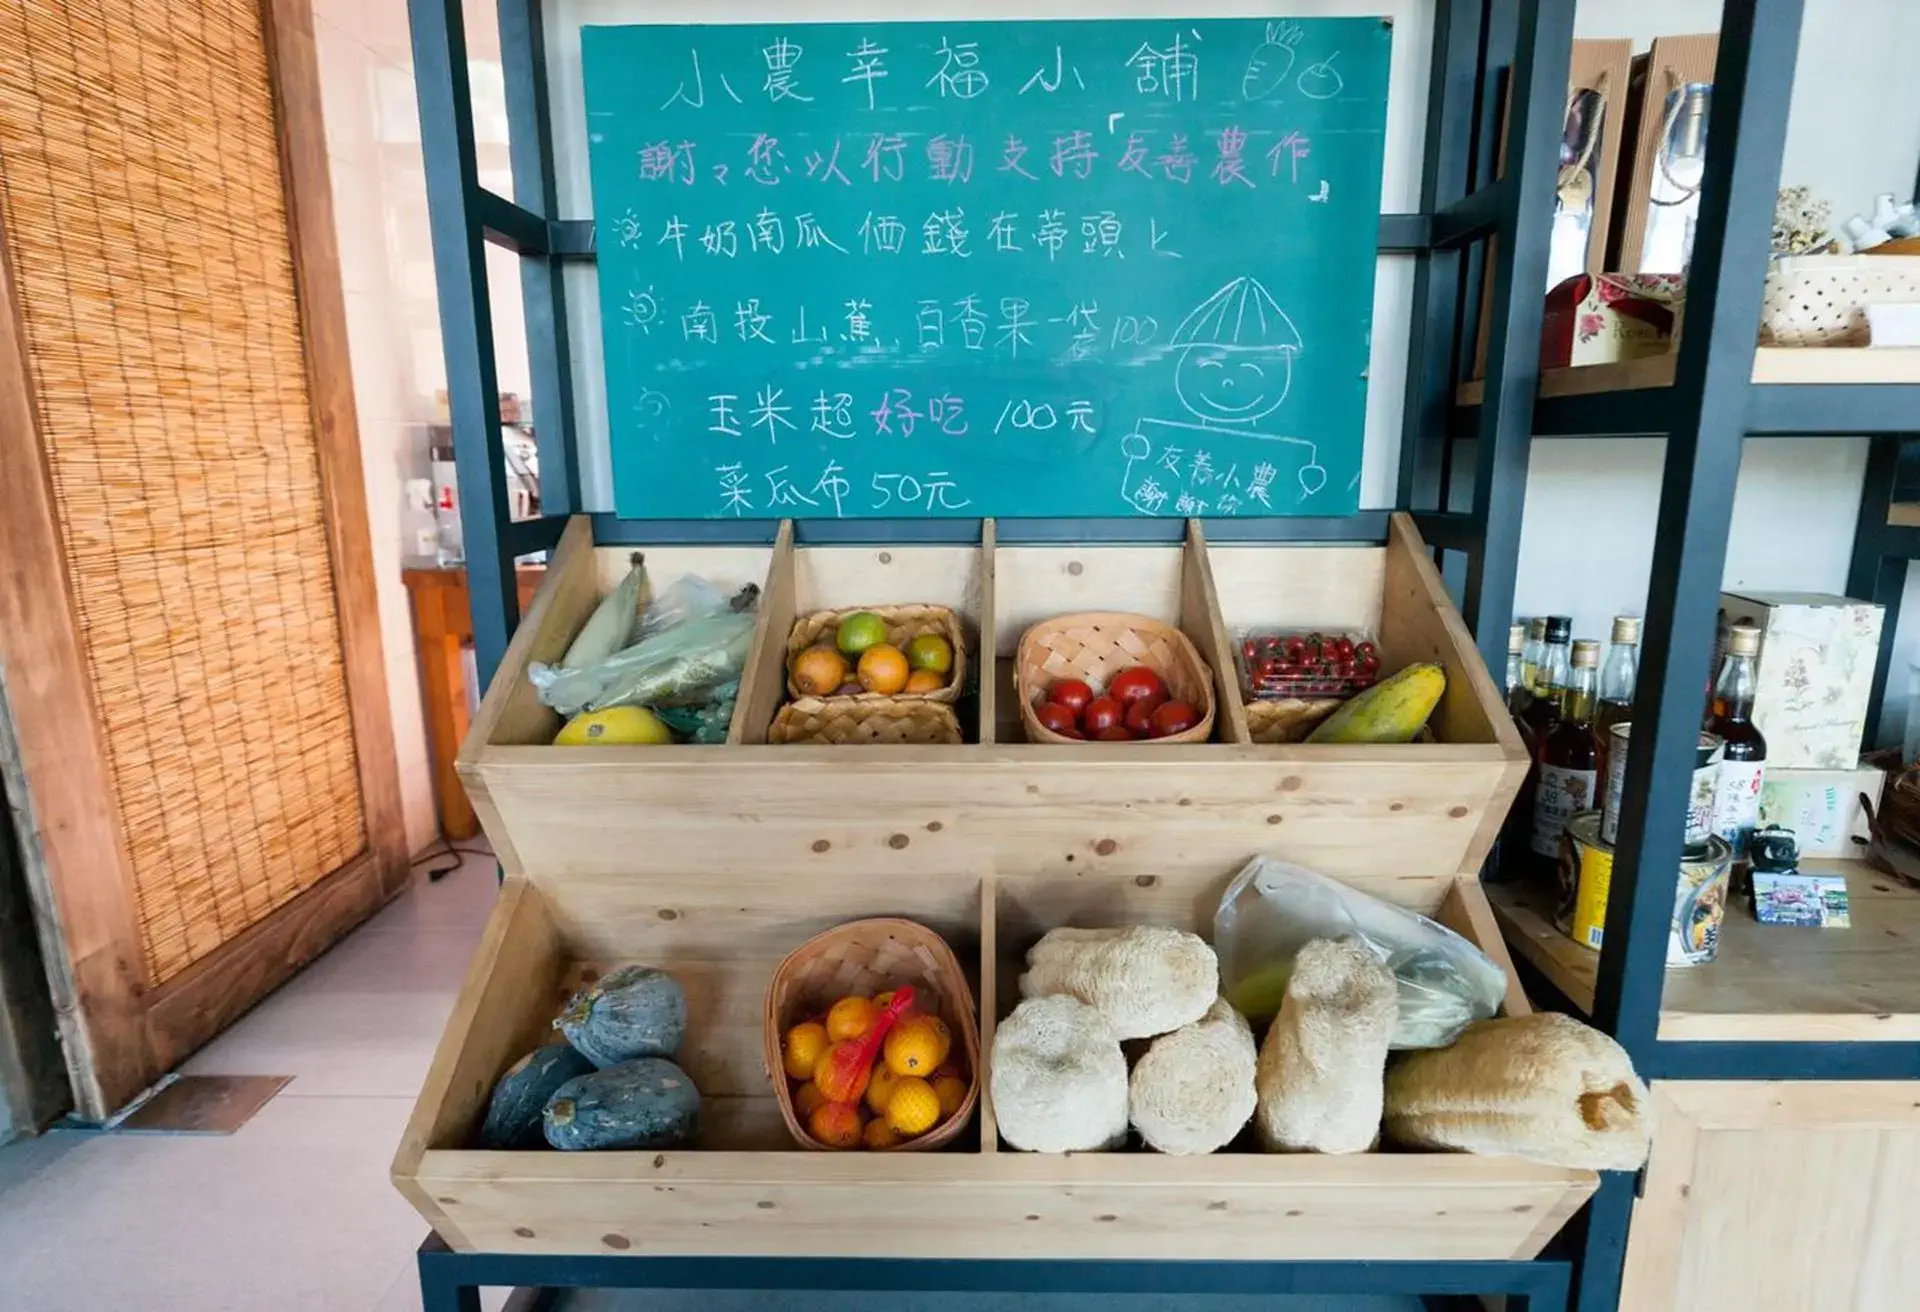 小農幸福小舖
謝々您以行動支持友善農作
牛奶南瓜 価錢在蒂頭上
南投山蕉、百香果一袋100
玉米超好吃 100元
菜瓜布50元
友善小農
謝謝你
38